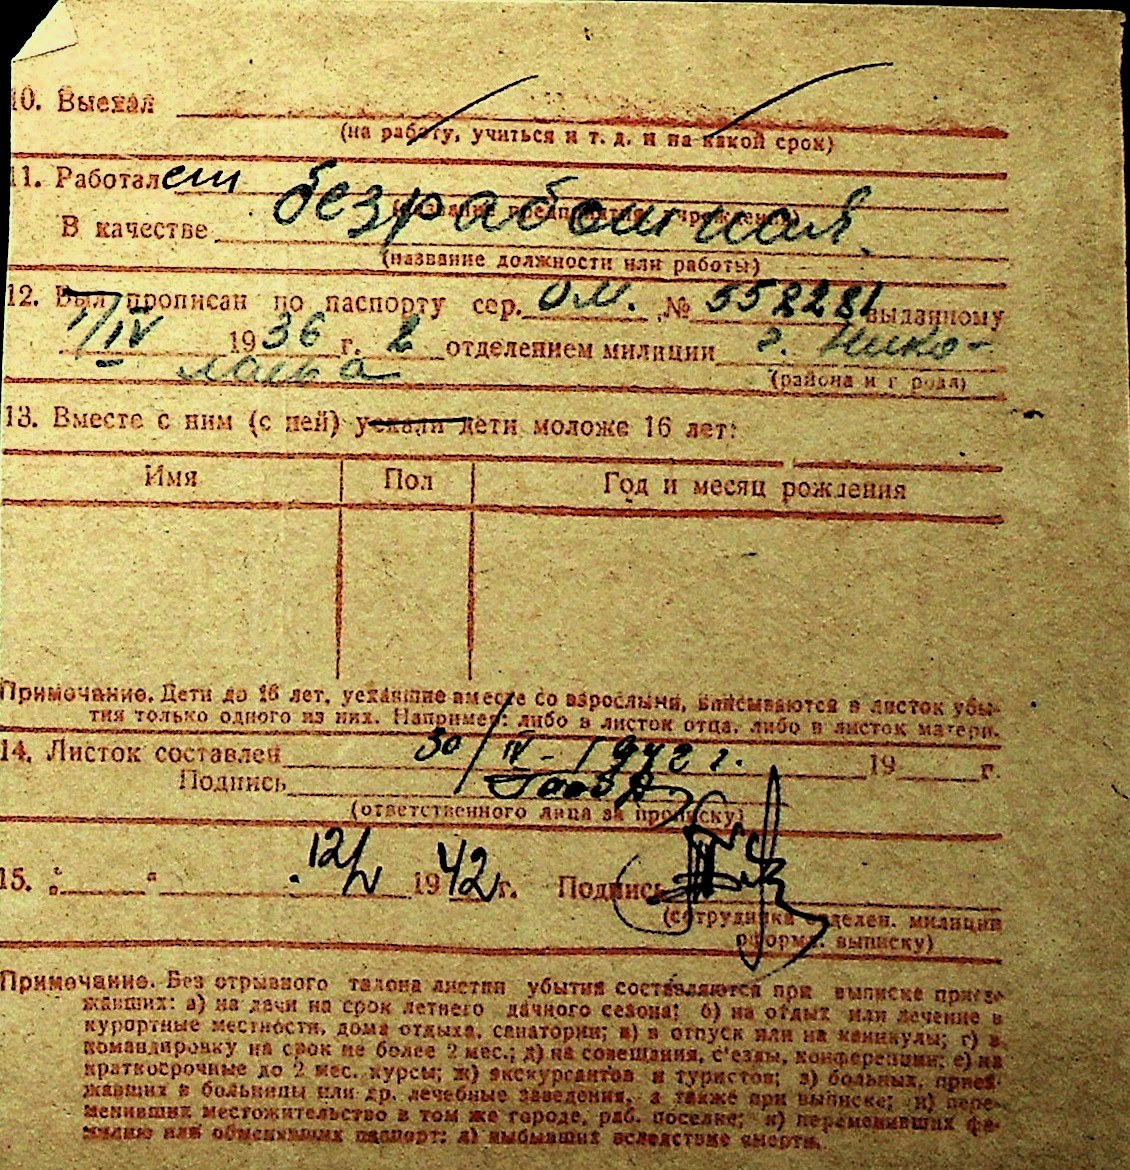 10. Выехал
(на работу, учиться и т. д. и на какой срок)
11. Работает безработная
В качестве
(название должности или работы)
12. Был прописан по паспорту сер. ОМ. № 558228 выданному
1/IV 1936 г. 2 отделением милиции г. Нико-
лаева
(района и города)
13. Вместе с ним (с ней) уехали дети моложе 16 лет:
Имя Пол Год и месяц рождения
Примечание. Дети до 16 лет, уехавшие вместе со взрослыми, вписываются в листок убы-
тия только одного из них. Например: либо в листок отца, либо в листок матери.
14. Листок составлен 30/IV - 1942 г. 19 г.
Подпись
(ответственного лица за прописку)
15. „ “ 12/V 1942 г. Подпись
(сотрудника отделен. милиции
оформ. выписку)
Примечание. Без отрывного талона листки убытия составляются при выписке приез-
жавших: а) на дачи на срок летнего дачного сезона; б) на отдых или лечение в
курортные местности, дома отдыха, санатории; в) в отпуск или на каникулы; г) в
командировку на срок не более 2 мес.; д) на совещания, с'езды, конференции; е) на
краткосрочные до 2 мес. курсы; ж) экскурсантов и туристов; з) больных, приез-
жавших в больницы или др. лечебные заведения, а также при выписке; и) пере-
менивших местожительство в том же городе, раб. поселке; к) переменивших фа-
милию или обменивших паспорт; л) выбывших вследствие смерти.